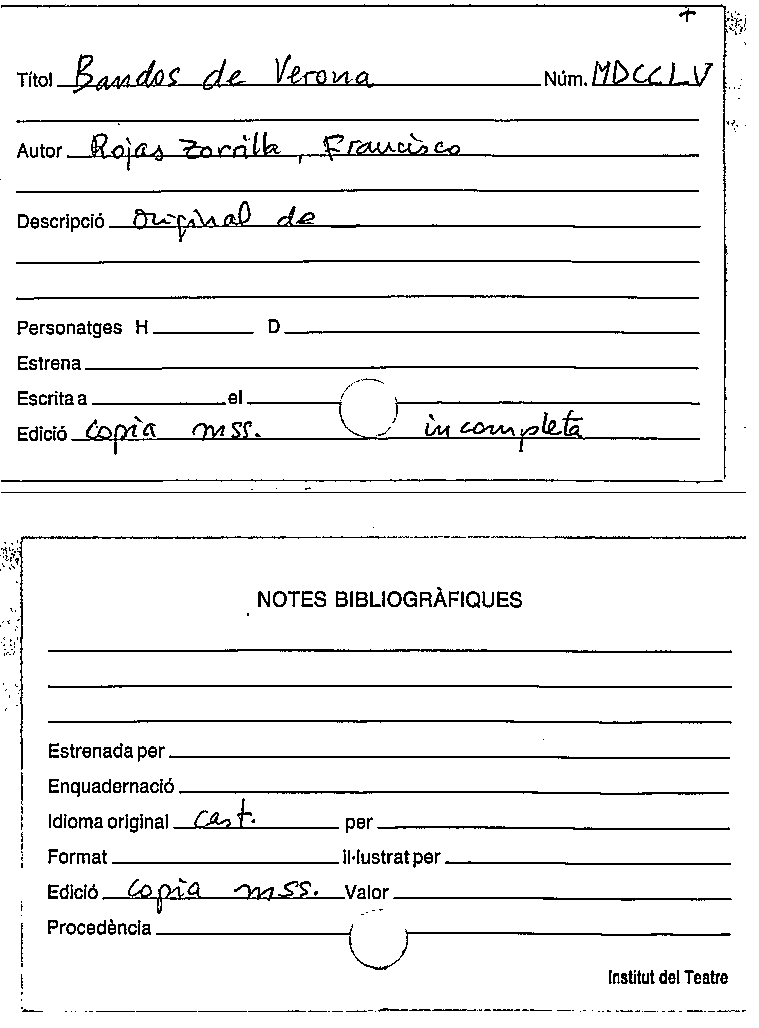 +
Títol Bandos de Verona Núm. MDCCLV
Autor Rojas Zorrilla, Francisco
Descripció original de
Personatges H D
Estrena
Escrita a el
Edició copia mss. incompleta
NOTES BIBLIOGRÀFIQUES
Estrenada per
Enquadernació
Idioma original cast. per
Format il·lustrat per
Edició copia mss. Valor
Procedència
Institut del Teatre